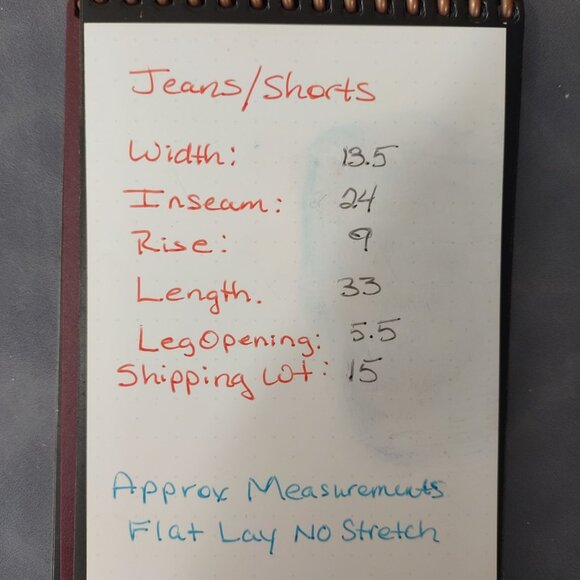 Jeans/Shorts
Width: 13.5
Inseam: 24
Rise: 9
Length. 33
Leg Opening: 5.5
Shipping Wt: 15
Approx Measurements
Flat Lay No Stretch